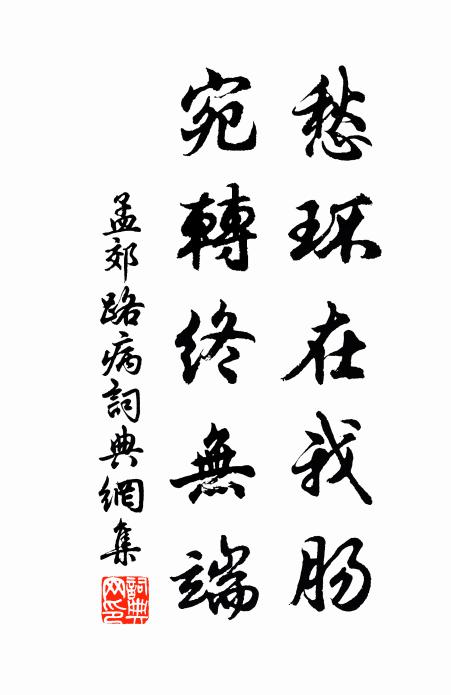 愁环在我肠
宛轉終無端
孟郊路病詞典網集
詞典網印